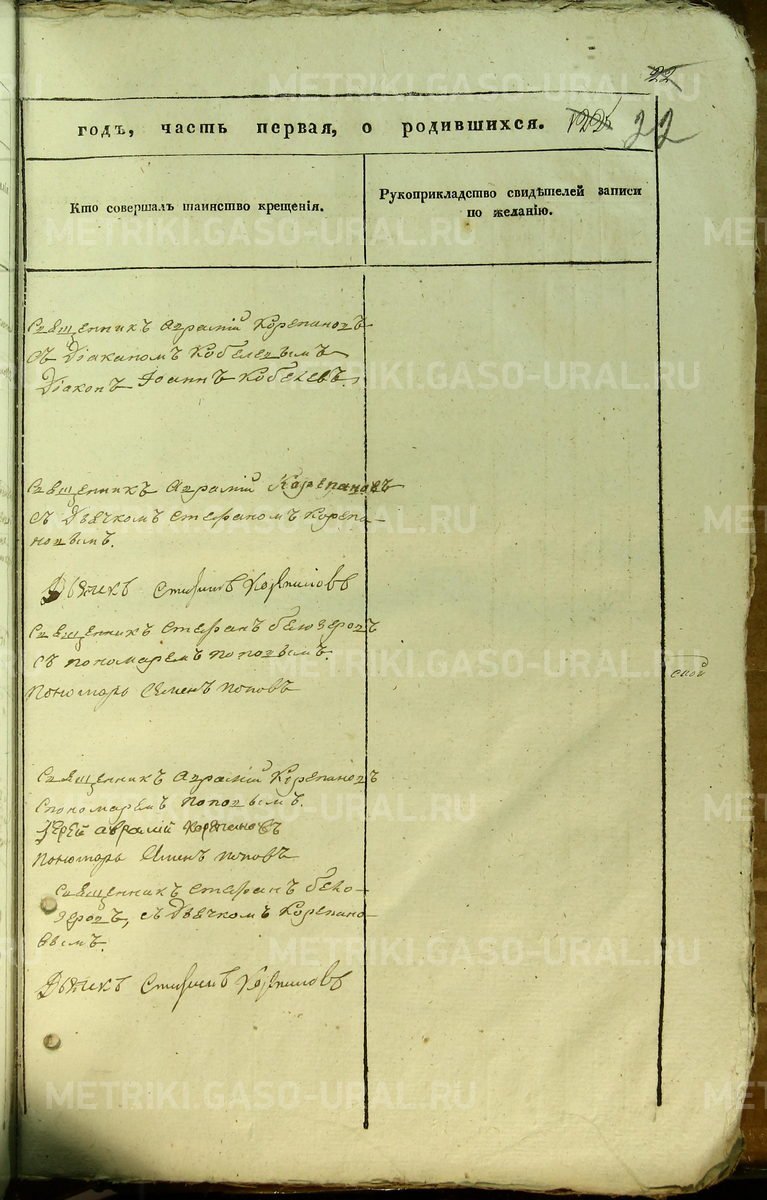 22
годъ, часть первая, о родившихся. 122 22
Кто совершалъ таинство крещенія.
Рукоприкладство свидѣтелей записи
по желанію.
Священникъ Аврамій Корепановъ
съ Діакономъ Кобелевымъ
Діаконъ Іоаннъ Кобелевъ.
Священникъ Аврамій Корепановъ
съ Дьячкомъ Стефаномъ Корепа-
новымъ.
Дьячекъ Стефанъ Корепановъ
Священникъ Стефанъ Белозеровъ
съ пономаремъ Поповымъ.
Пономарь Семенъ Поповъ
Священникъ Аврамій Корепановъ
спономаремъ Поповымъ.
Іерей Аврамій Корепановъ
Пономарь Семенъ Поповъ
Священникъ Стефанъ Бело-
зеровъ, съ Дьячкомъ Корепано-
вымъ.
Дьячекъ Стефанъ Корепановъ
METRIKI.GASO-URAL.RU